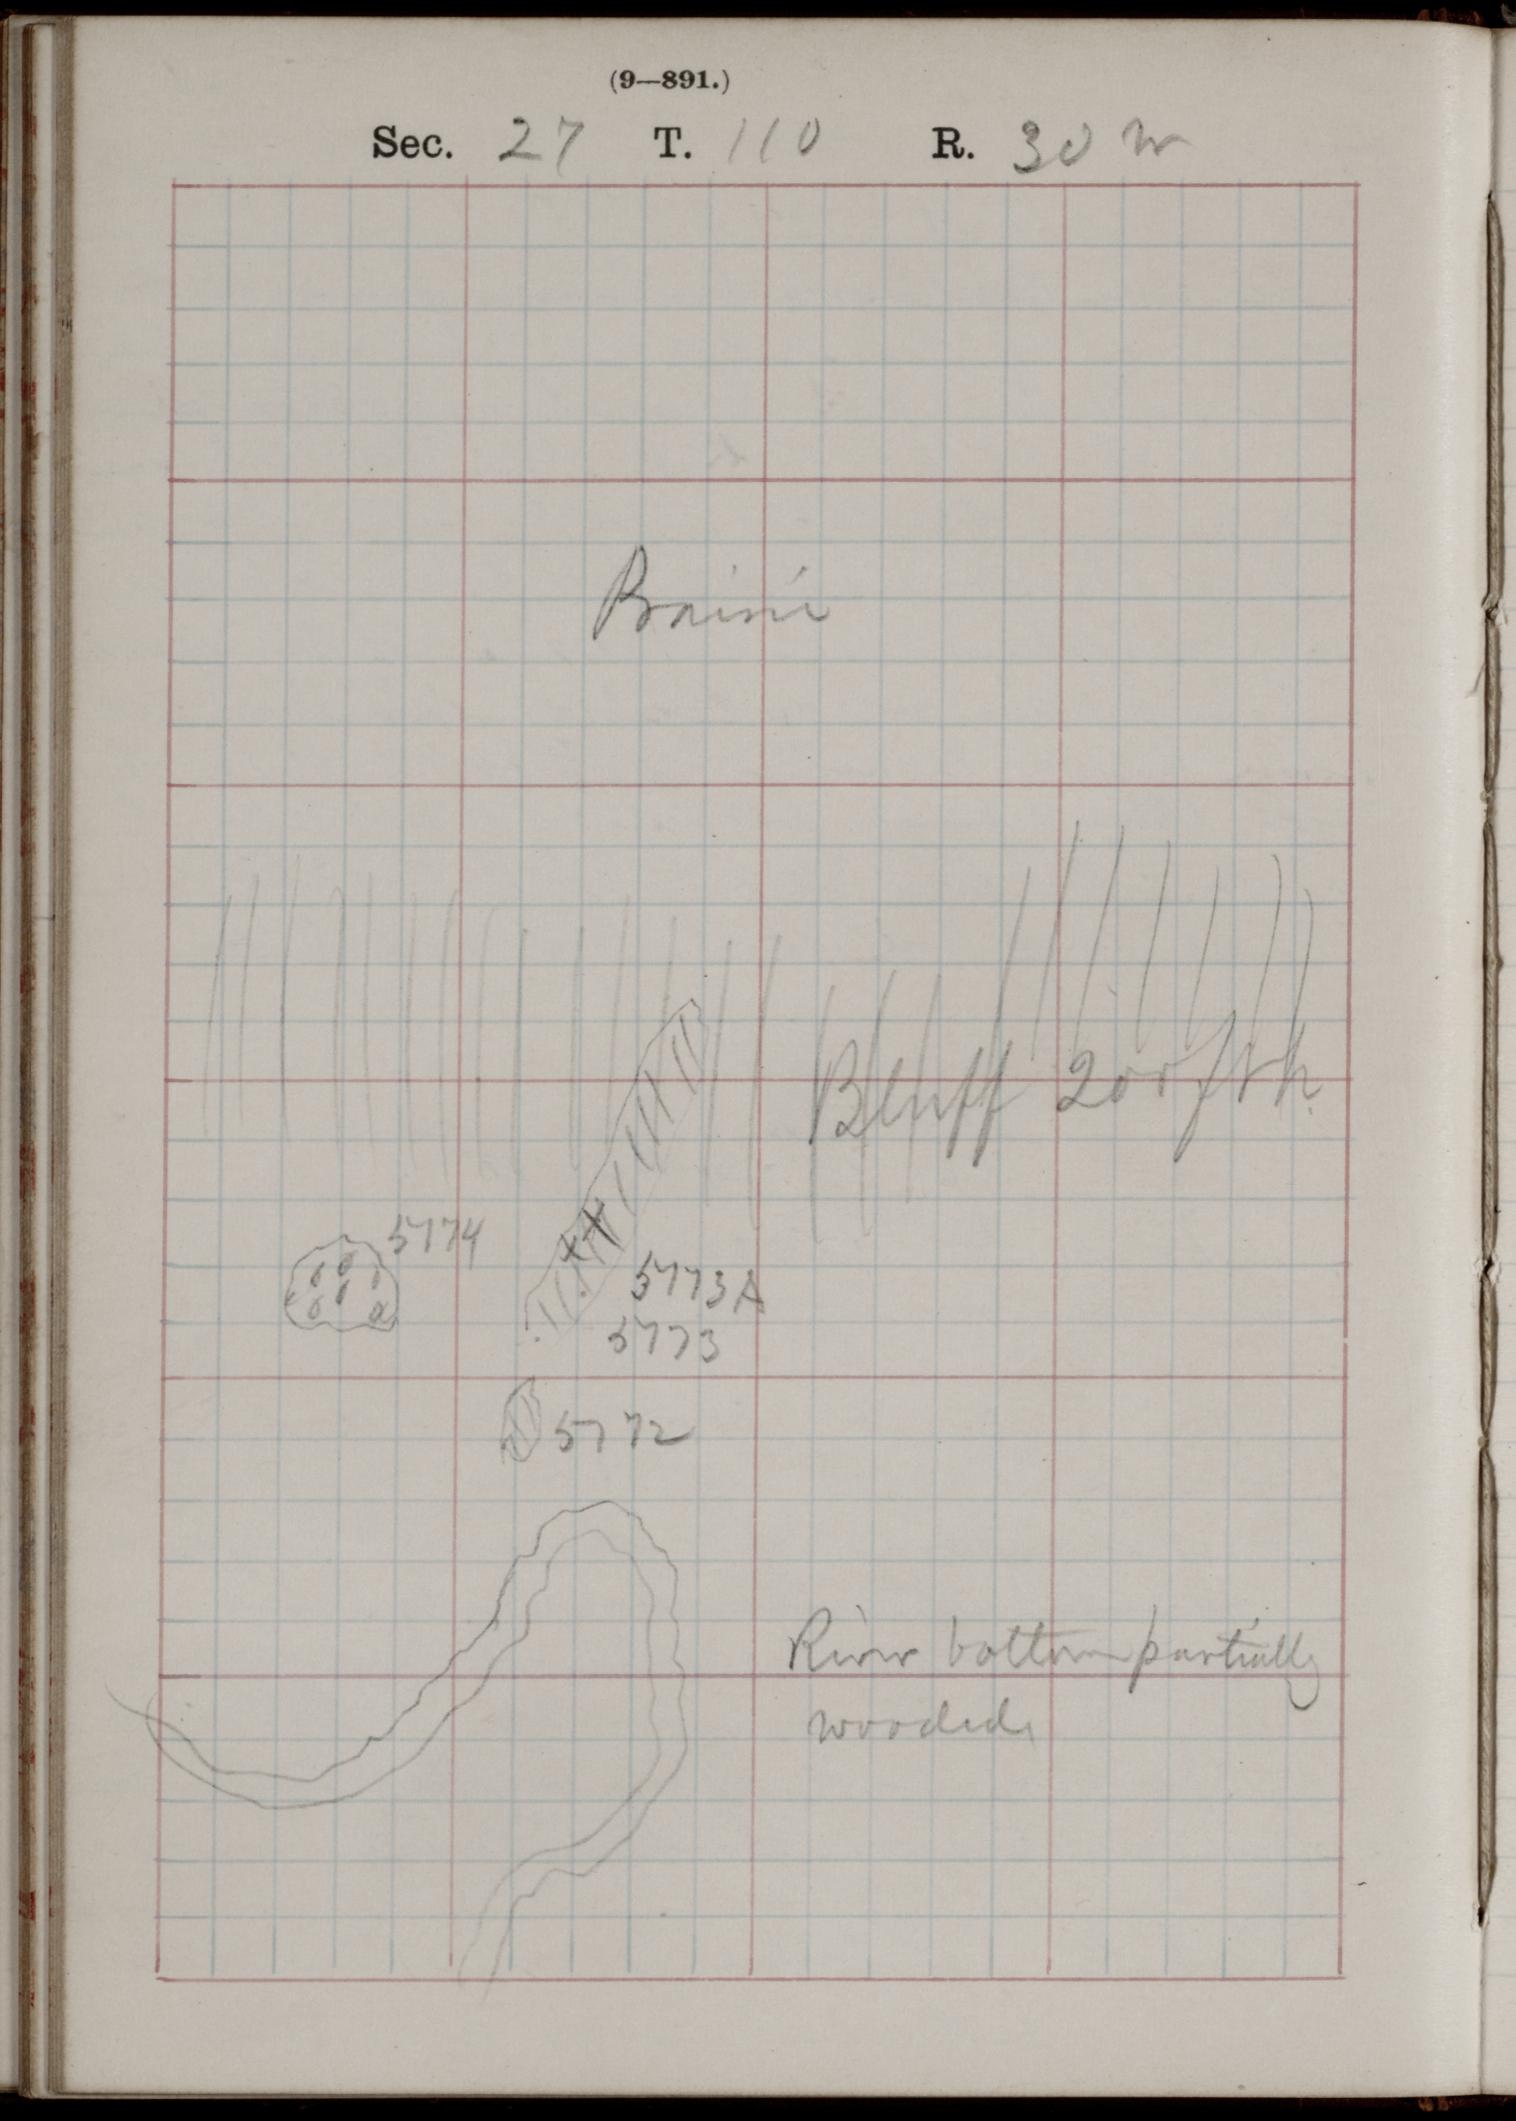 (9—891.)
Sec. 27 T. 110 R. 30 W
Prairie
Bluff 200 ft h.
5774
5773A
5773
5772
River bottom partially
wooded